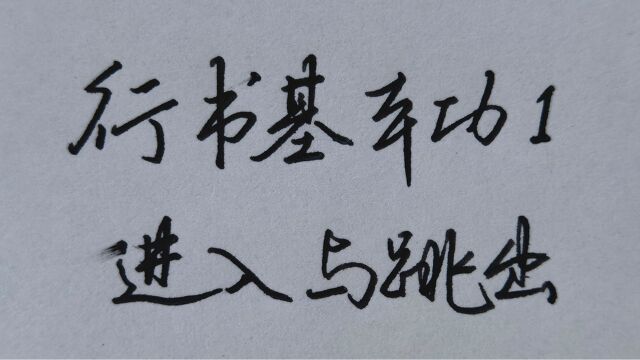 行书基本功1
进入与跳出